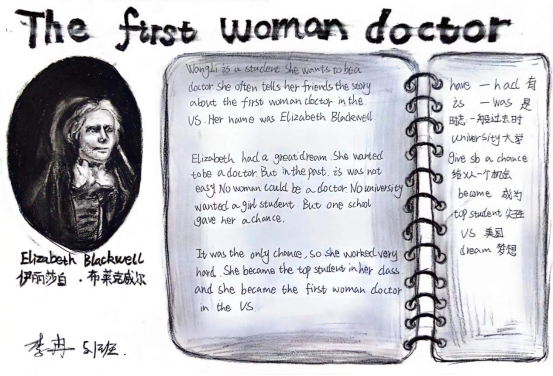 The first woman doctor
Elizabeth Blackwell
伊丽莎白·布莱克威尔
李冉 5.1班.
WangLi is a student She wants to be a
doctor She often tells her friends the story
about the first woman doctor in the
VS. Her name was Elizabeth Blackwell.
Elizabeth had a great dream. She wanted
to be a doctor. But in the past, is was not
easy. No woman could be a doctor. No university
wanted a girl student. But one school
gave her a chance.
It was the only chance, so she worked very
hard. She became the top student in her class
and she became the first woman doctor
in the VS.
have — had 有
is — was 是
时态 一般过去时
university 大学
give sb a chance
给某人一个机会
become 成为
top student 尖子生
VS 美国
dream 梦想